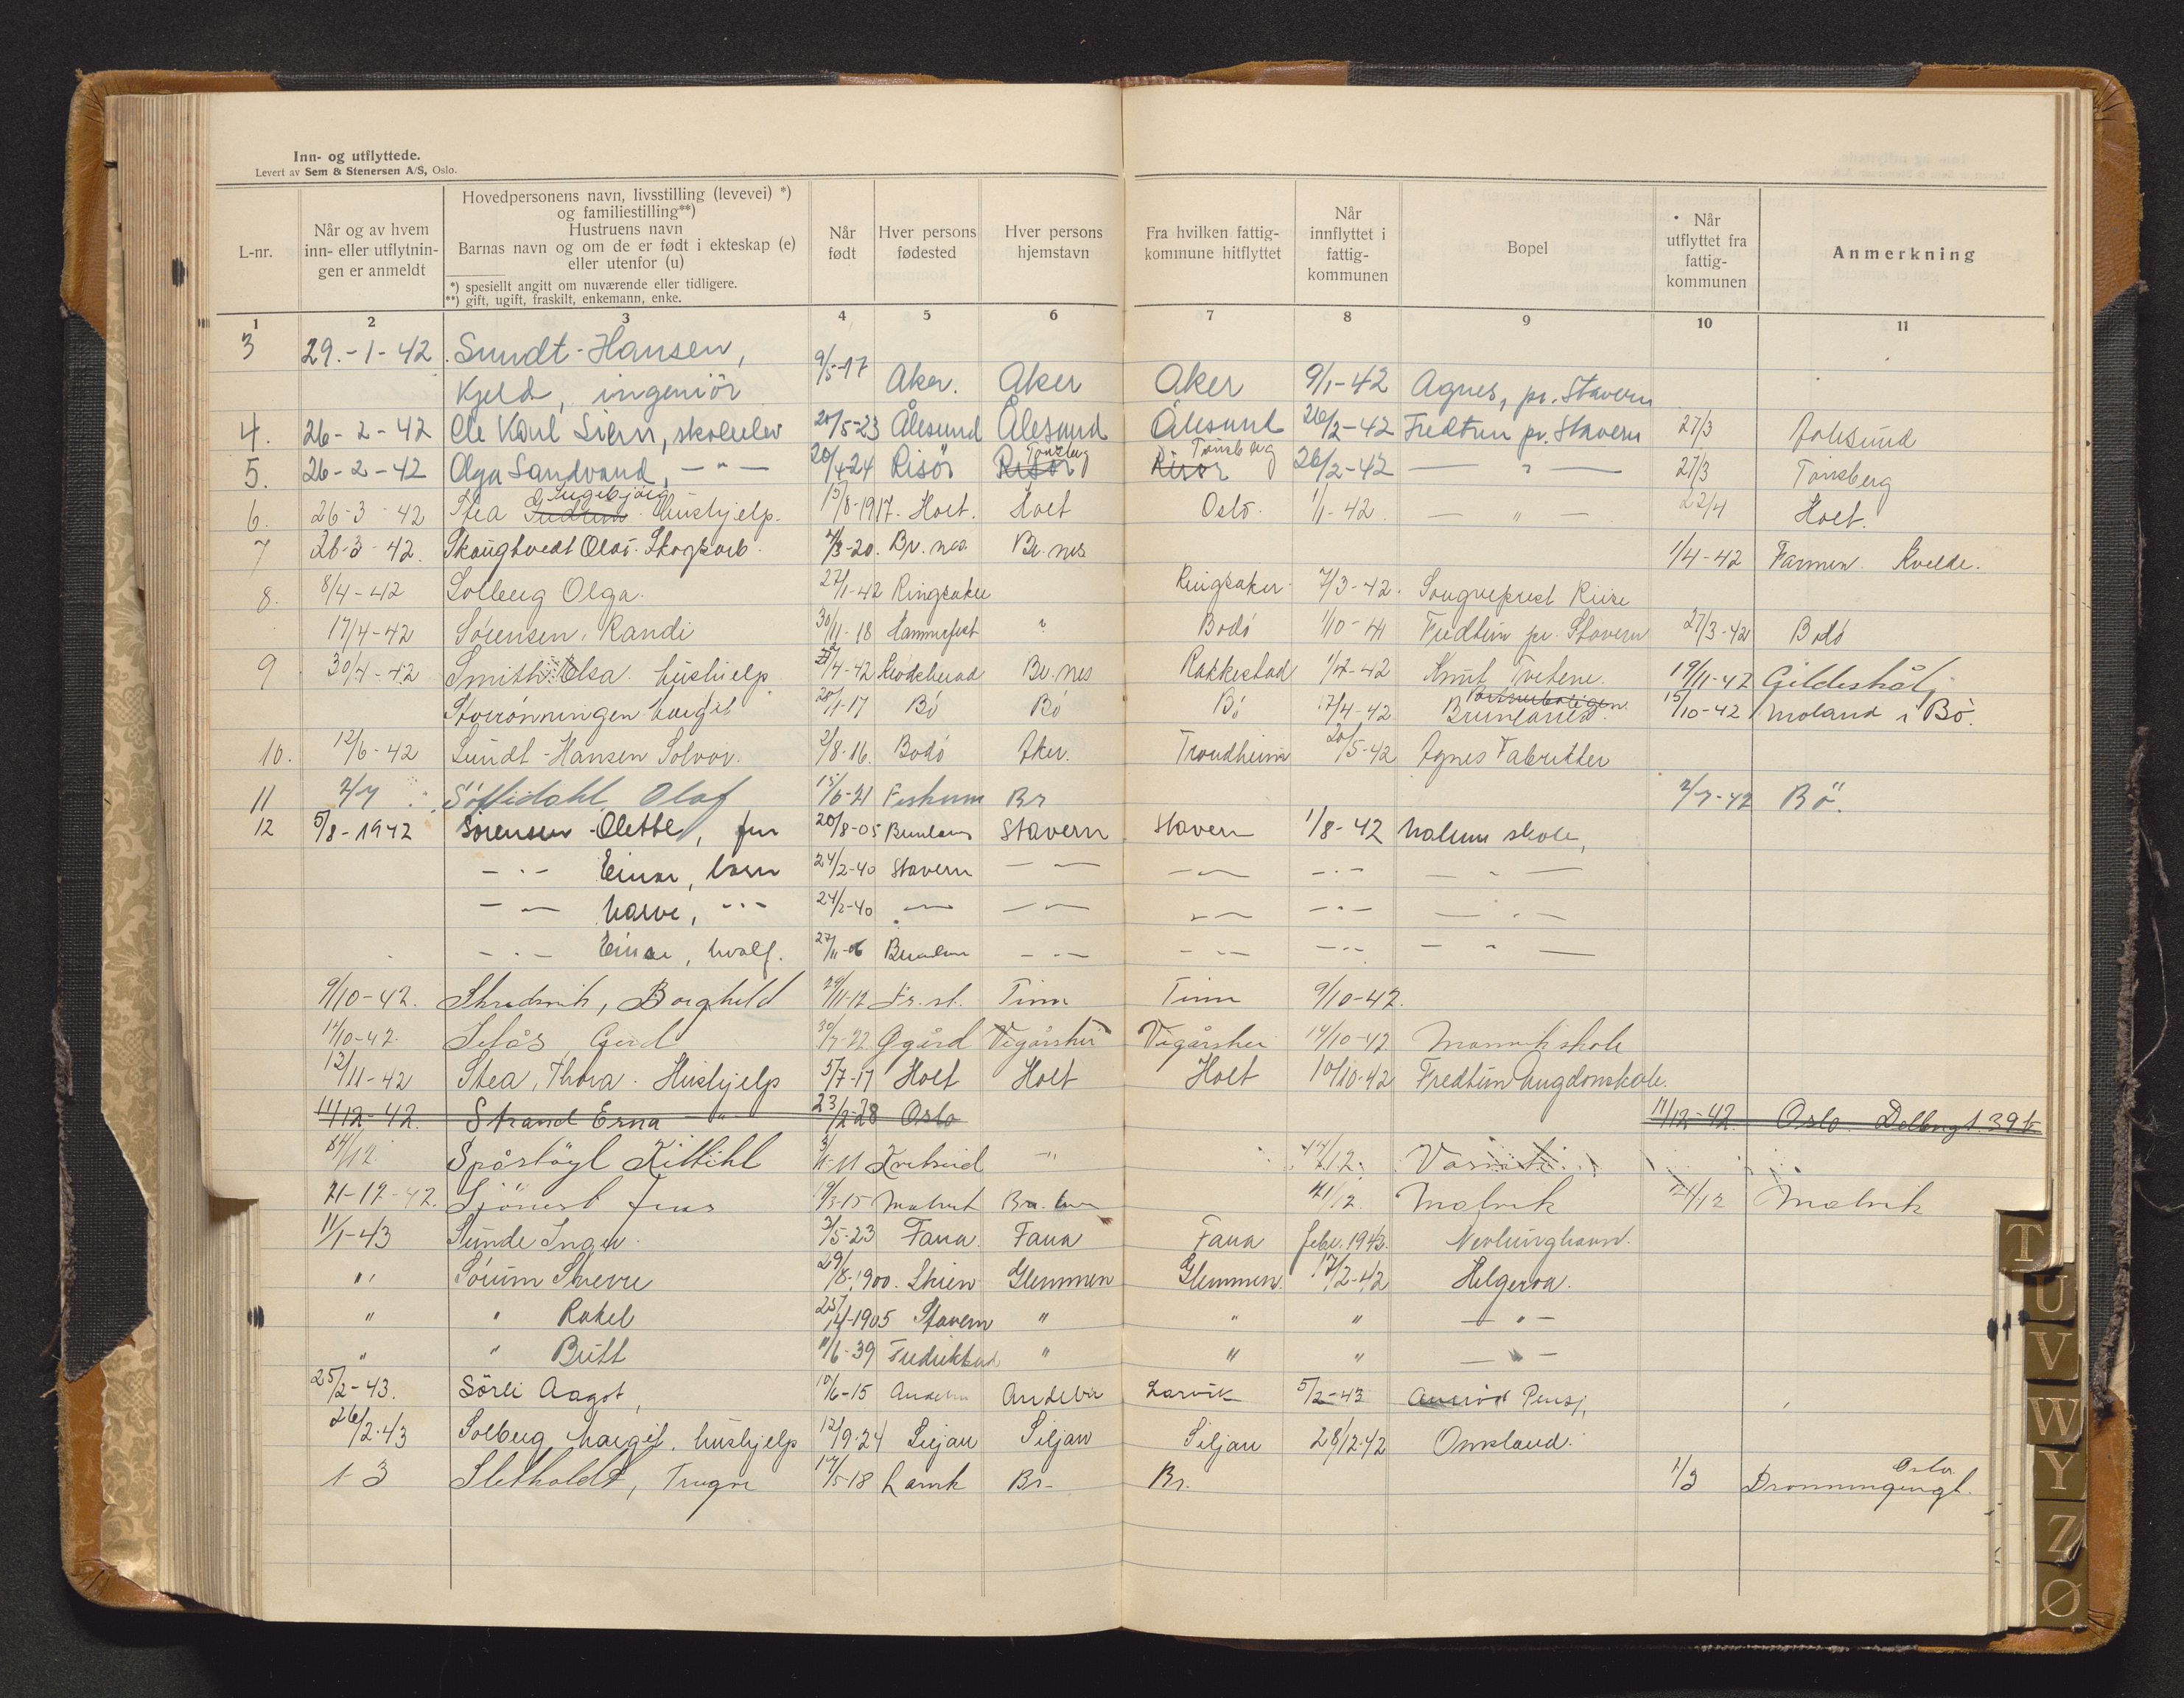 Inn- og utflyttede.
Levert av Sem & Stenersen A/S, Oslo.
L-nr. Når og av hvem inn- eller utflytningen er anmeldt Hovedpersonens navn, livsstilling (levevei) *) og familiestilling**) Hustruens navn Barnas navn og om de er født i ekteskap (e) eller utenfor (u) *) spesiellt angitt om nuværende eller tidligere. **) gift, ugift, fraskilt, enkemann, enke. Når født Hver persons fødested Hver persons hjemstavn Fra hvilken fattigkommune hitflyttet Når innflyttet i fattigkommunen Bopel Når utflyttet fra fattigkommunen Anmerkning
1 2 3 4 5 6 7 8 9 10 11
3 29.-1-42 Sundt-Hansen,
Kjeld, ingeniör 9/5-17 Aker. Aker Aker 9/1-42 Agnes, pr. Stavern
4. 26-2-42 Ole Karl Siem, skoleelev 20/5-23 Ålesund Ålesund Ålesund 26/2-42 Fredtun pr. Stavern 27/3 Aalesund
5. 26-2-42 Olga Sandvand, -"- 20/4-24 Risör Risör Tönsberg Risör Tönsberg 26/2-42 - " - 27/3 Tönsberg
6. 26-3-42 Stea Gudrun Ingebjörg hushjelp. 15/8-1917. Holt. Holt Oslo. 1/1-42. - " - 22/4 Holt.
7 26-3-42. Skaugtvedt Olav. Skogsarb. 7/3-20. Br.nes Br.nes 1/4-42 Farmen Kvelde.
8. 8/4-42 Solberg Olga. 27/1-42 Ringsaker Ringsaker 7/3-42. Sogneprest Riise
17/4-42 Sörensen, Randi 30/11-18 Hammerfest ? Bodö 1/10-41 Fredtun pr. Stavern 27/3-42 Bodö
9 30/4-42 Smith Elsa. hushjelp /4-42 Br.nes Rakkestad 1/4-42 Knut Tvetene. 19/11-42 Gildeskål
Stoerönningen Margit 20/1-17 Bö Bö Bö 17/4-42 Brunlanes 15/10-42 Moland i Bö.
10. 12/6-42 Sundt-Hansen Solvor. 2/8-16. Bodö Aker. Trondheim 20/5-42 Agnes Fabrikker
11 2/7 Olaf 15/6-21 Br 2/7-42 Bö.
12 5/8-1942 Sörensen Olette, fru 20/8-05 Brunlanes Stavern Stavern 1/8-42 Halum skole,
-"- Einar, barn 24/2-40 Stavern - - - - -"- - " -
- - Halve, -"- 24/2-40 - - - - -"- - " -
-"- Einar, hvalf. 27/11-06 Brunlan -"- -"- -"- - " -
9/10-42. Borghild 29/11-12 Fr.st. Tinn Tinn 9/10-42.
14/10-42 Selås Gerd 30/7-22 Gjgård Vegårshei Vegårshei 14/10-42 Manvikskole
13/11-42 Stea, Thora. Hushjelp 5/7-17 Holt Holt Holt 10/10-42 Fredtun Ungdomskole.
11/12-42. Strand Erna " 23/2-28 Oslo 11/12-42. Oslo. Dalbergt. 39 b
14/12. Spåstöyl Kittihl 3/11-11 Kviteseid -"- 14/12.
21-12-42. Sjönest Jens 9/3-15 Malvik 21/12. Malvik 21/12 Malvik
11/1-43 Sunde Inger. 3/5-23 Fana. Fana Fana febr. 1942. Nevlunghavn.
" Sörum Sverre 29/8-1900. Skien Glemmen Glemmen. 17/2-42 Helgeroa.
" " Rakel 25/4-1905 Stavern " " " - " -
" " Britt 11/6-39 Fredrikstad " " " - " -
25/2-43. Sörli Aagot, 10/6-15 Andebu Andebu Larvik 5/2-43 Pensj.
26/2-43 Solberg Margit. hushjelp 12/9-24 Siljan Siljan Siljan 28/12-42 Omsland.
1 3 Sletholdt, Trygve 17/5-18 Larvik Br- Br. 1/3 Dronningensgt. Oslo.
T
U
V
W
Y
Z
Ø